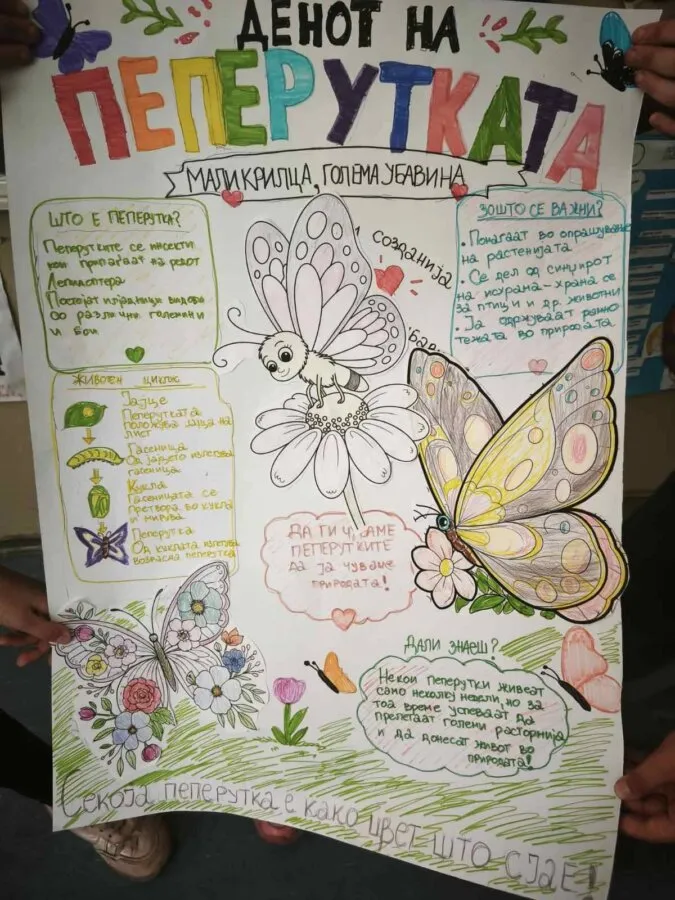 ДЕНОТ НА
ПЕПЕРУТКАТА
МАЛИ КРИЛЦА, ГОЛЕМА УБАВИНА
ШТО Е ПЕПЕРУТКА?
Пеперутките се инсекти
кои припаѓаат на редот
Лепидоптера
Постојат илјадници видови
со различни големини
и бои
ЗОШТО СЕ ВАЖНИ?
• Помагаат во опрашување
на растенијата
• Се дел од синџирот
на исхрана - храна се
за птици и др. животни
• Ја одржуваат рамно
тежата во природата.
созданија
ЖИВОТЕН ЦИКЛУС
Јајце
Пеперутката
положува јајца на
лист
Гасеница
Од јајцето излегува
гасеница
Кукла
Гасеницата се
претвора во кукла
и мирува
Пеперутка
Од куклата излегува
возрасна пеперутка
ДА ГИ ЧУВАМЕ
ПЕПЕРУТКИТЕ
ДА ЈА ЧУВАМЕ
ПРИРОДАТА!
ДАЛИ ЗНАЕШ?
Некои пеперутки живеат
само неколку недели, но за
тоа време успеваат да
прелетаат големи расторнија
и да донесат живот во
природата!
Секоја пеперутка е како цвет што сјае!